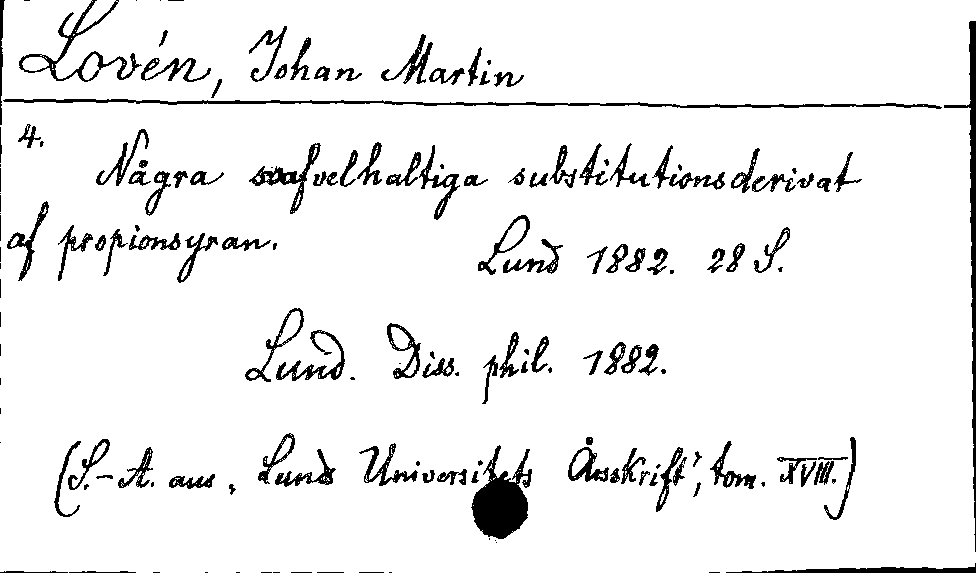 Lovén, Johan Martin
4.
Några svafvelhaltiga substitutionsderivat
af propionsyran.
Lund 1882. 28 S.
Lund. Diss. phil. 1882.
(S.-A. aus „Lunds Universitets Årsskrift", tom. XVIII.)